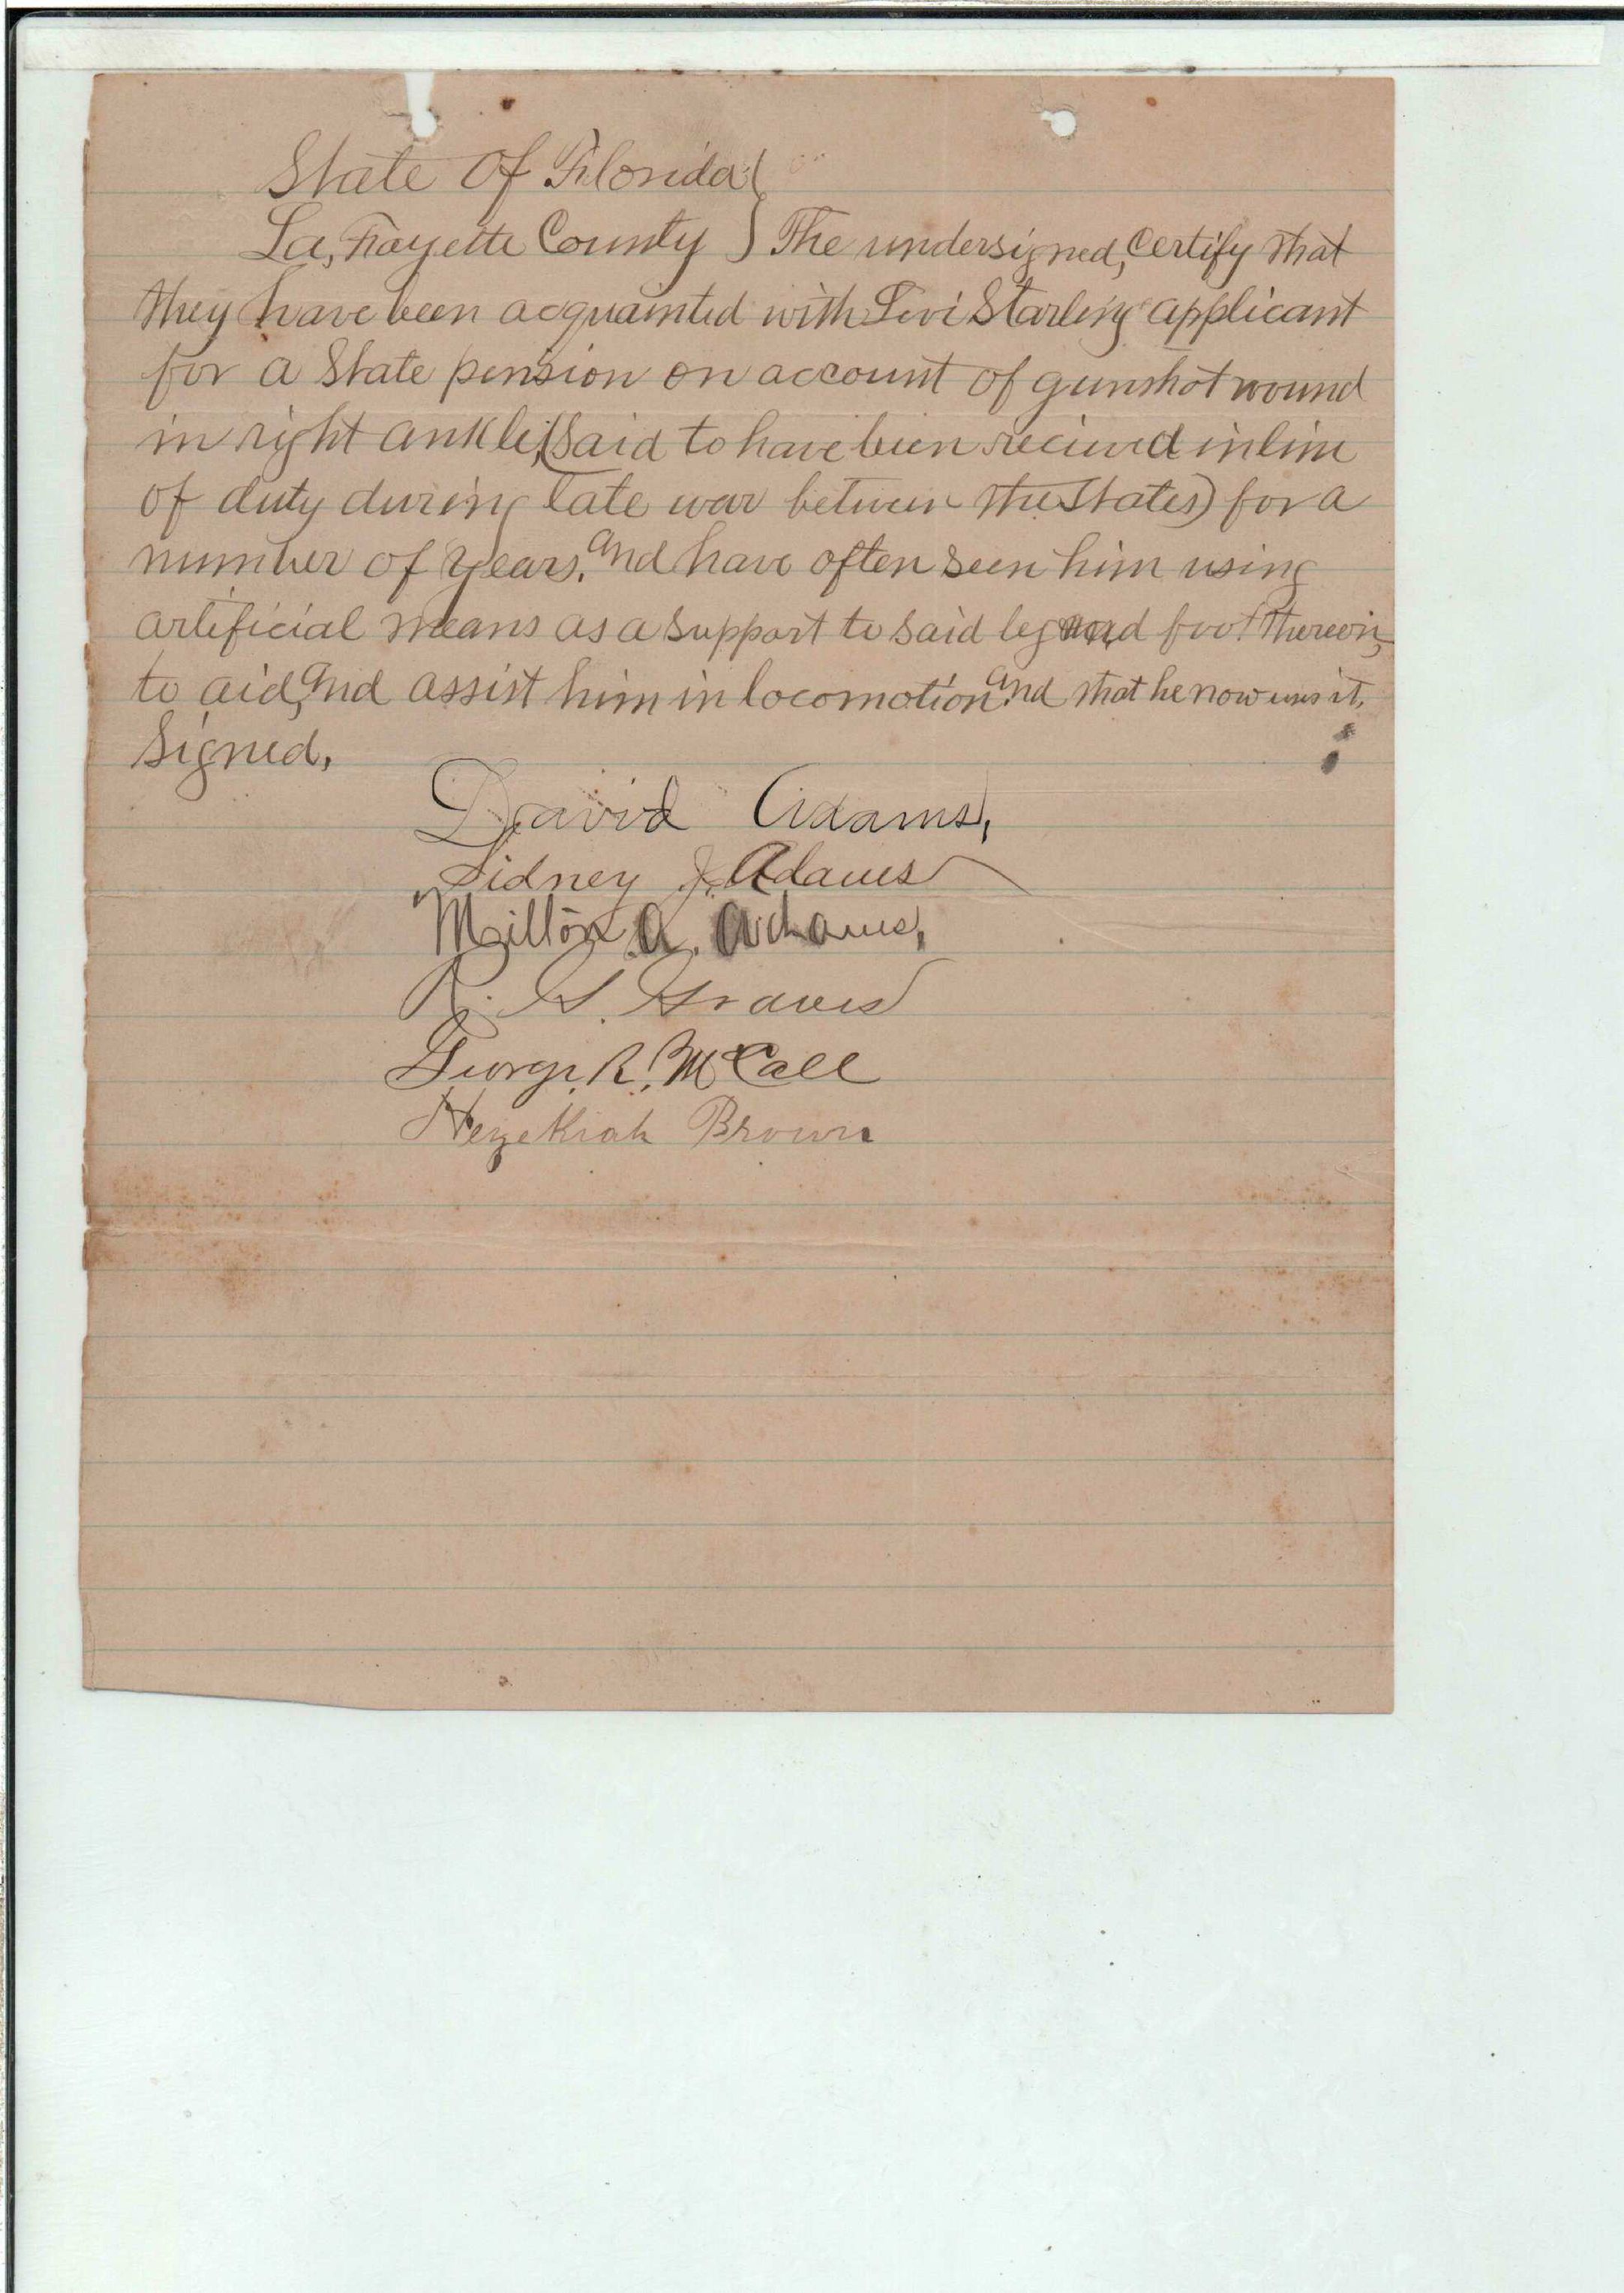 State Of Florida
La, Fayette County } The undersigned, certify that
they have been acquainted with Levi Starling applicant
for a State pension on account of gunshot wound
in right ankle, (said to have been recieved in line
of duty during late war between the States) for a
number of years, and have often seen him using
artificial means as a support to said leg and foot thereon,
to aid, and assist him in locomotion and that he now uses it.
Signed,
David Adams,
Sidney J. Adams
Milton A. Adams,
R. S. Graves
George R. McCall
Hezekiah Brown